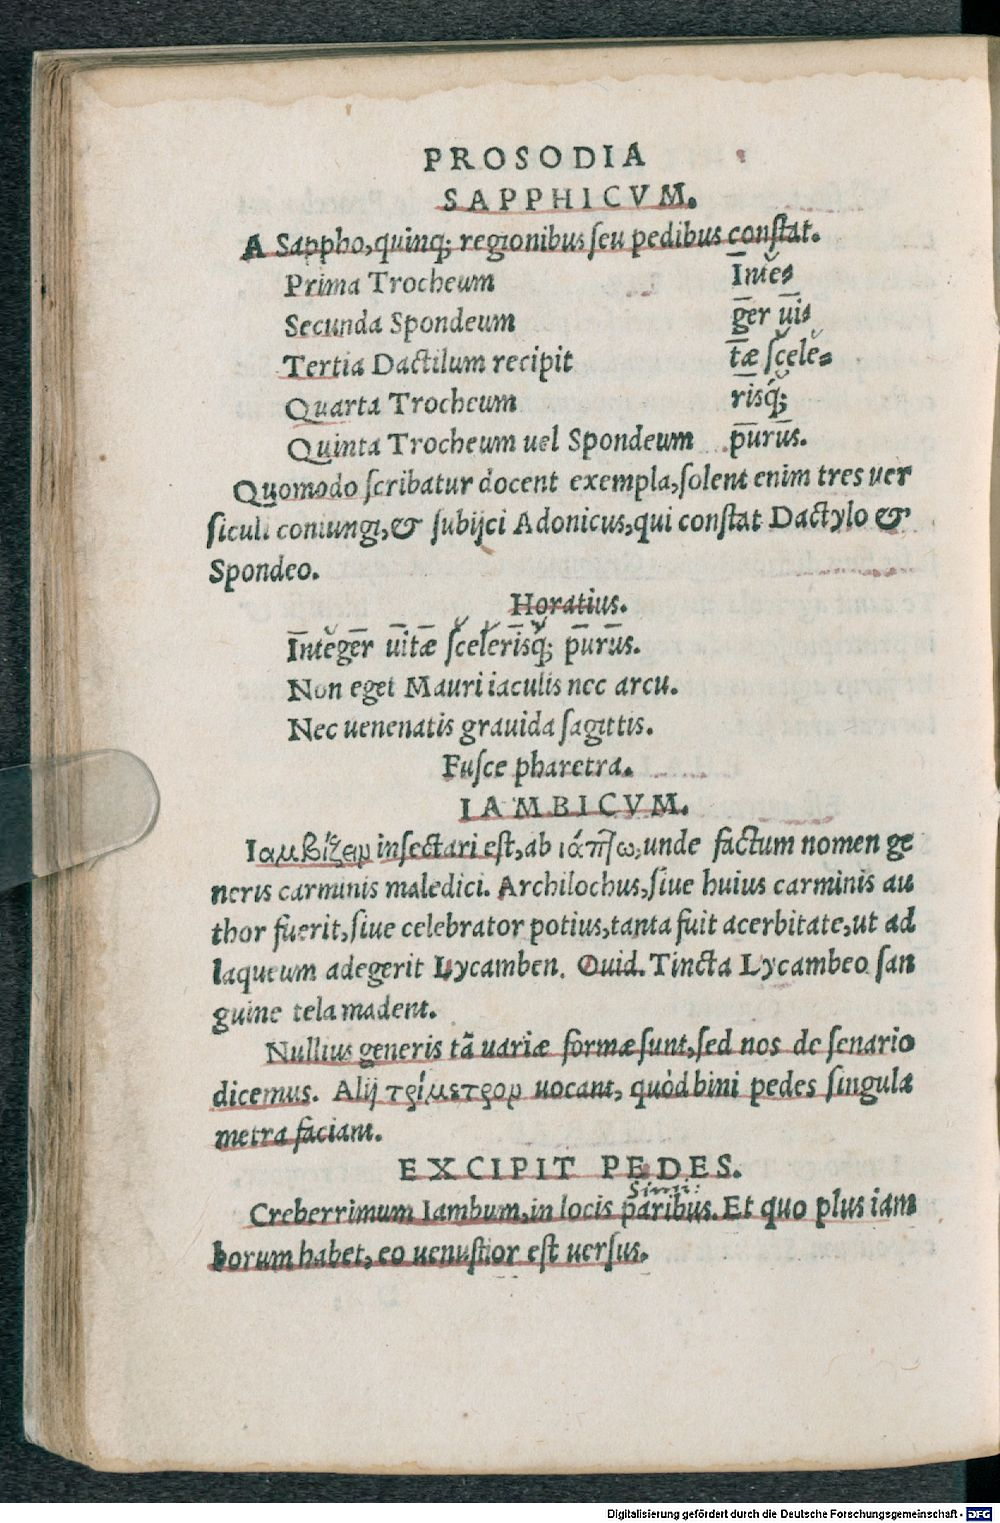 PROSODIA
SAPPHICVM.
A Sappho, quinq; regionibus ſeu pedibus conſtat.
Prima Trocheum Īntĕ⸗
Secunda Spondeum gēr uī⸗
Tertia Dactilum recipit tǣ ſcĕlĕ⸗
Quarta Trocheum rīsq́;̆
Quinta Trocheum uel Spondeum pūrūs.
Quomodo ſcribatur docent exempla, ſolent enim tres uer
ſiculi coniungi, & ſubijci Adonicus, qui conſtat Dactylo &
Spondeo.
Horatius.
Īntĕgēr uītǣ ſcĕlĕrīsq́;̆ pūrūs.
Non eget Mauri iaculis nec arcu.
Nec uenenatis grauida ſagittis.
Fuſce pharetra.
IAMBICVM.
Ιαμβίζειν inſectari eſt, ab ἰάπτω, unde factum nomen ge
neris carminis maledici. Archilochus, ſiue huius carminis au
thor fuerit, ſiue celebrator potius, tanta fuit acerbitate, ut ad
laqueum adegerit Lycamben. Ouid. Tincta Lycambeo ſan
guine tela madent.
Nullius generis tā uariæ formæ ſunt, ſed nos de ſenario
dicemus. Alij τρίμετρον uocant, quòd bini pedes ſingula
metra faciant.
EXCIPIT PEDES.
Creberrimum Iambum, in locis paribus. Et quo plus iam
borum habet, eo uenuſtior eſt uerſus.
Digitalisierung gefördert durch die Deutsche Forschungsgemeinschaft - DFG